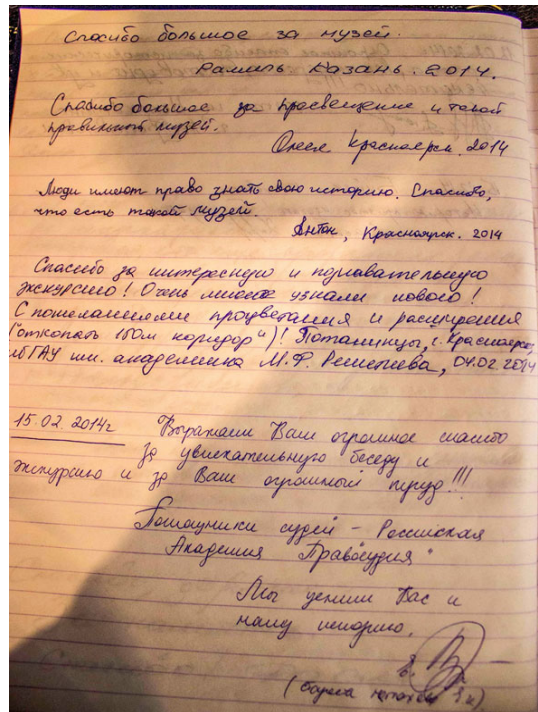 Спасибо большое за музей.
Рамиль Казань. 2014.
Спасибо большое за просвещение и такой
правильный музей.
Олеся Красноярск. 2014
Люди имеют право знать свою историю. Спасибо,
что есть такой музей.
Антон, Красноярск. 2014
Спасибо за интересную и познавательную
экскурсию! Очень многое узнали нового!
С пожеланиями процветания и расширения
("откопать 150м коридор")! Потанинцы, г. Красноярск,
СибГАУ им. академика М.Ф. Решетнёва, 04.02.2014
15.02.2014г Выражаем Вам огромное спасибо
за увлекательную беседу и
экскурсию и за Ваш огромный труд!!!
Помощники судей – Российская
Академия Правосудия"
Мы ценим Вас и
нашу историю.